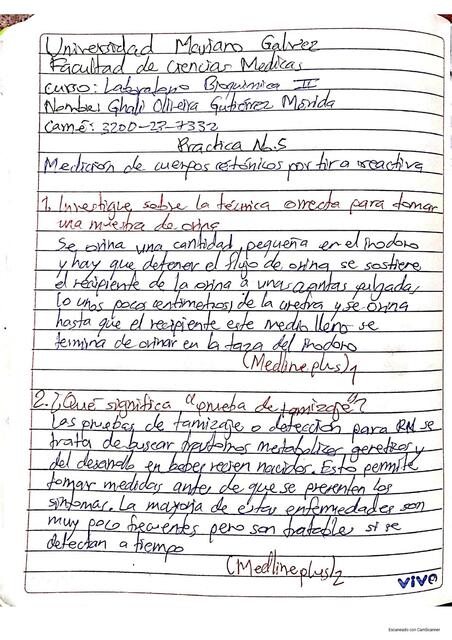 Universidad Mariano Galvez
Facultad de Ciencias Medicas
Curso: Laboratorio Bioquimica II
Nombre: Ghali Oliveira Gutiérrez Mérida
Carné: 3200-23-7332
Practica No.5
Medición de cuerpos cetónicos por tira reactiva
1. Investigue sobre la técnica correcta para tomar
una muestra de orina
Se orina una cantidad pequeña en el inodoro
y hay que detener el flujo de orina, se sostiene
el recipiente de la orina a unas cuantas pulgadas
(o unos pocos centimetros) de la uretra y se orina
hasta que el recipiente este medio lleno se
termina de orinar en la taza del inodoro
(Medlineplus)1
2. ¿Qué significa "prueba de tamizaje"?
Las pruebas de tamizaje o detección para RN se
trata de buscar trastornos metabolicos geneticos y
del desarollo en bebes recien nacidos. Esto permite
tomar medidas antes de que se presenten los
sintomas. La mayoria de estas enfermedades son
muy poco frecuentes pero son tratable si se
detectan a tiempo
(Medlineplus)2
vivo
Escaneado con CamScanner